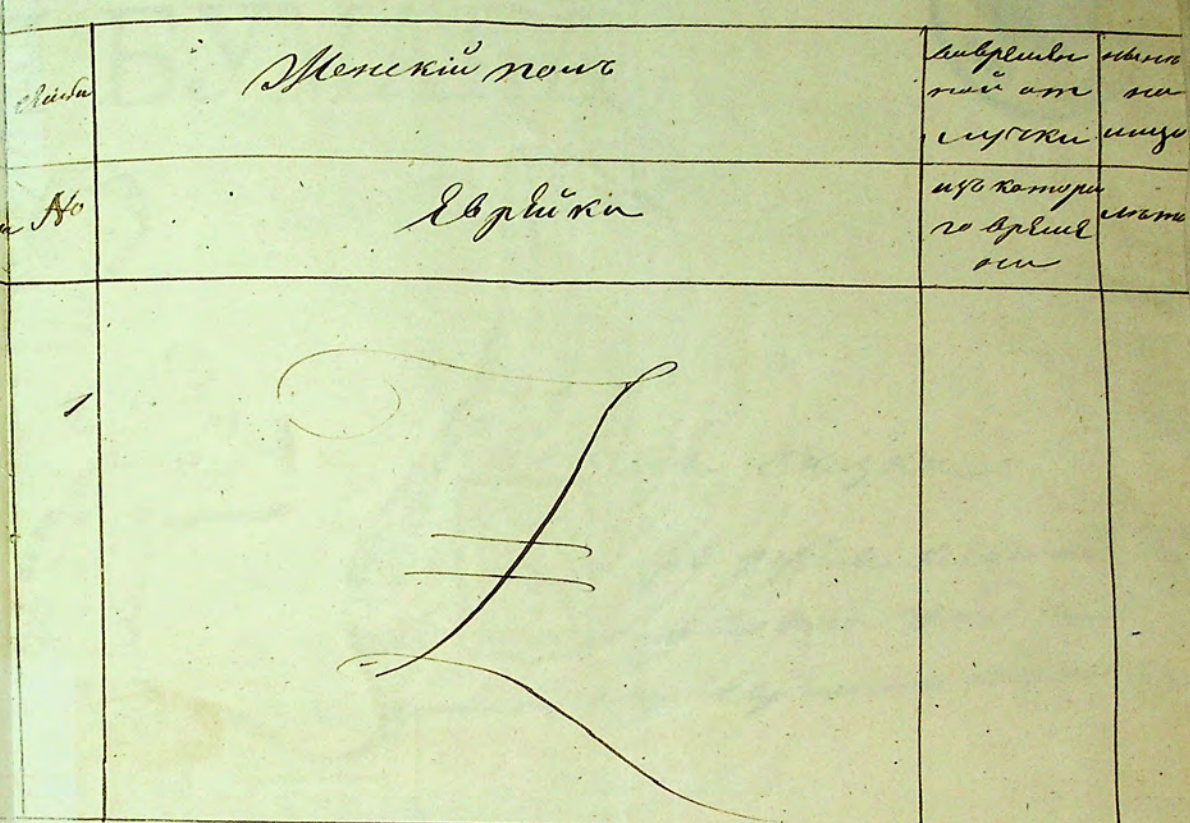 Женскій полъ
вовремен
ной от
лучки
нынѣ
на
лицо
№
Еврейки
изъ котора
го време
ни
лѣта
1